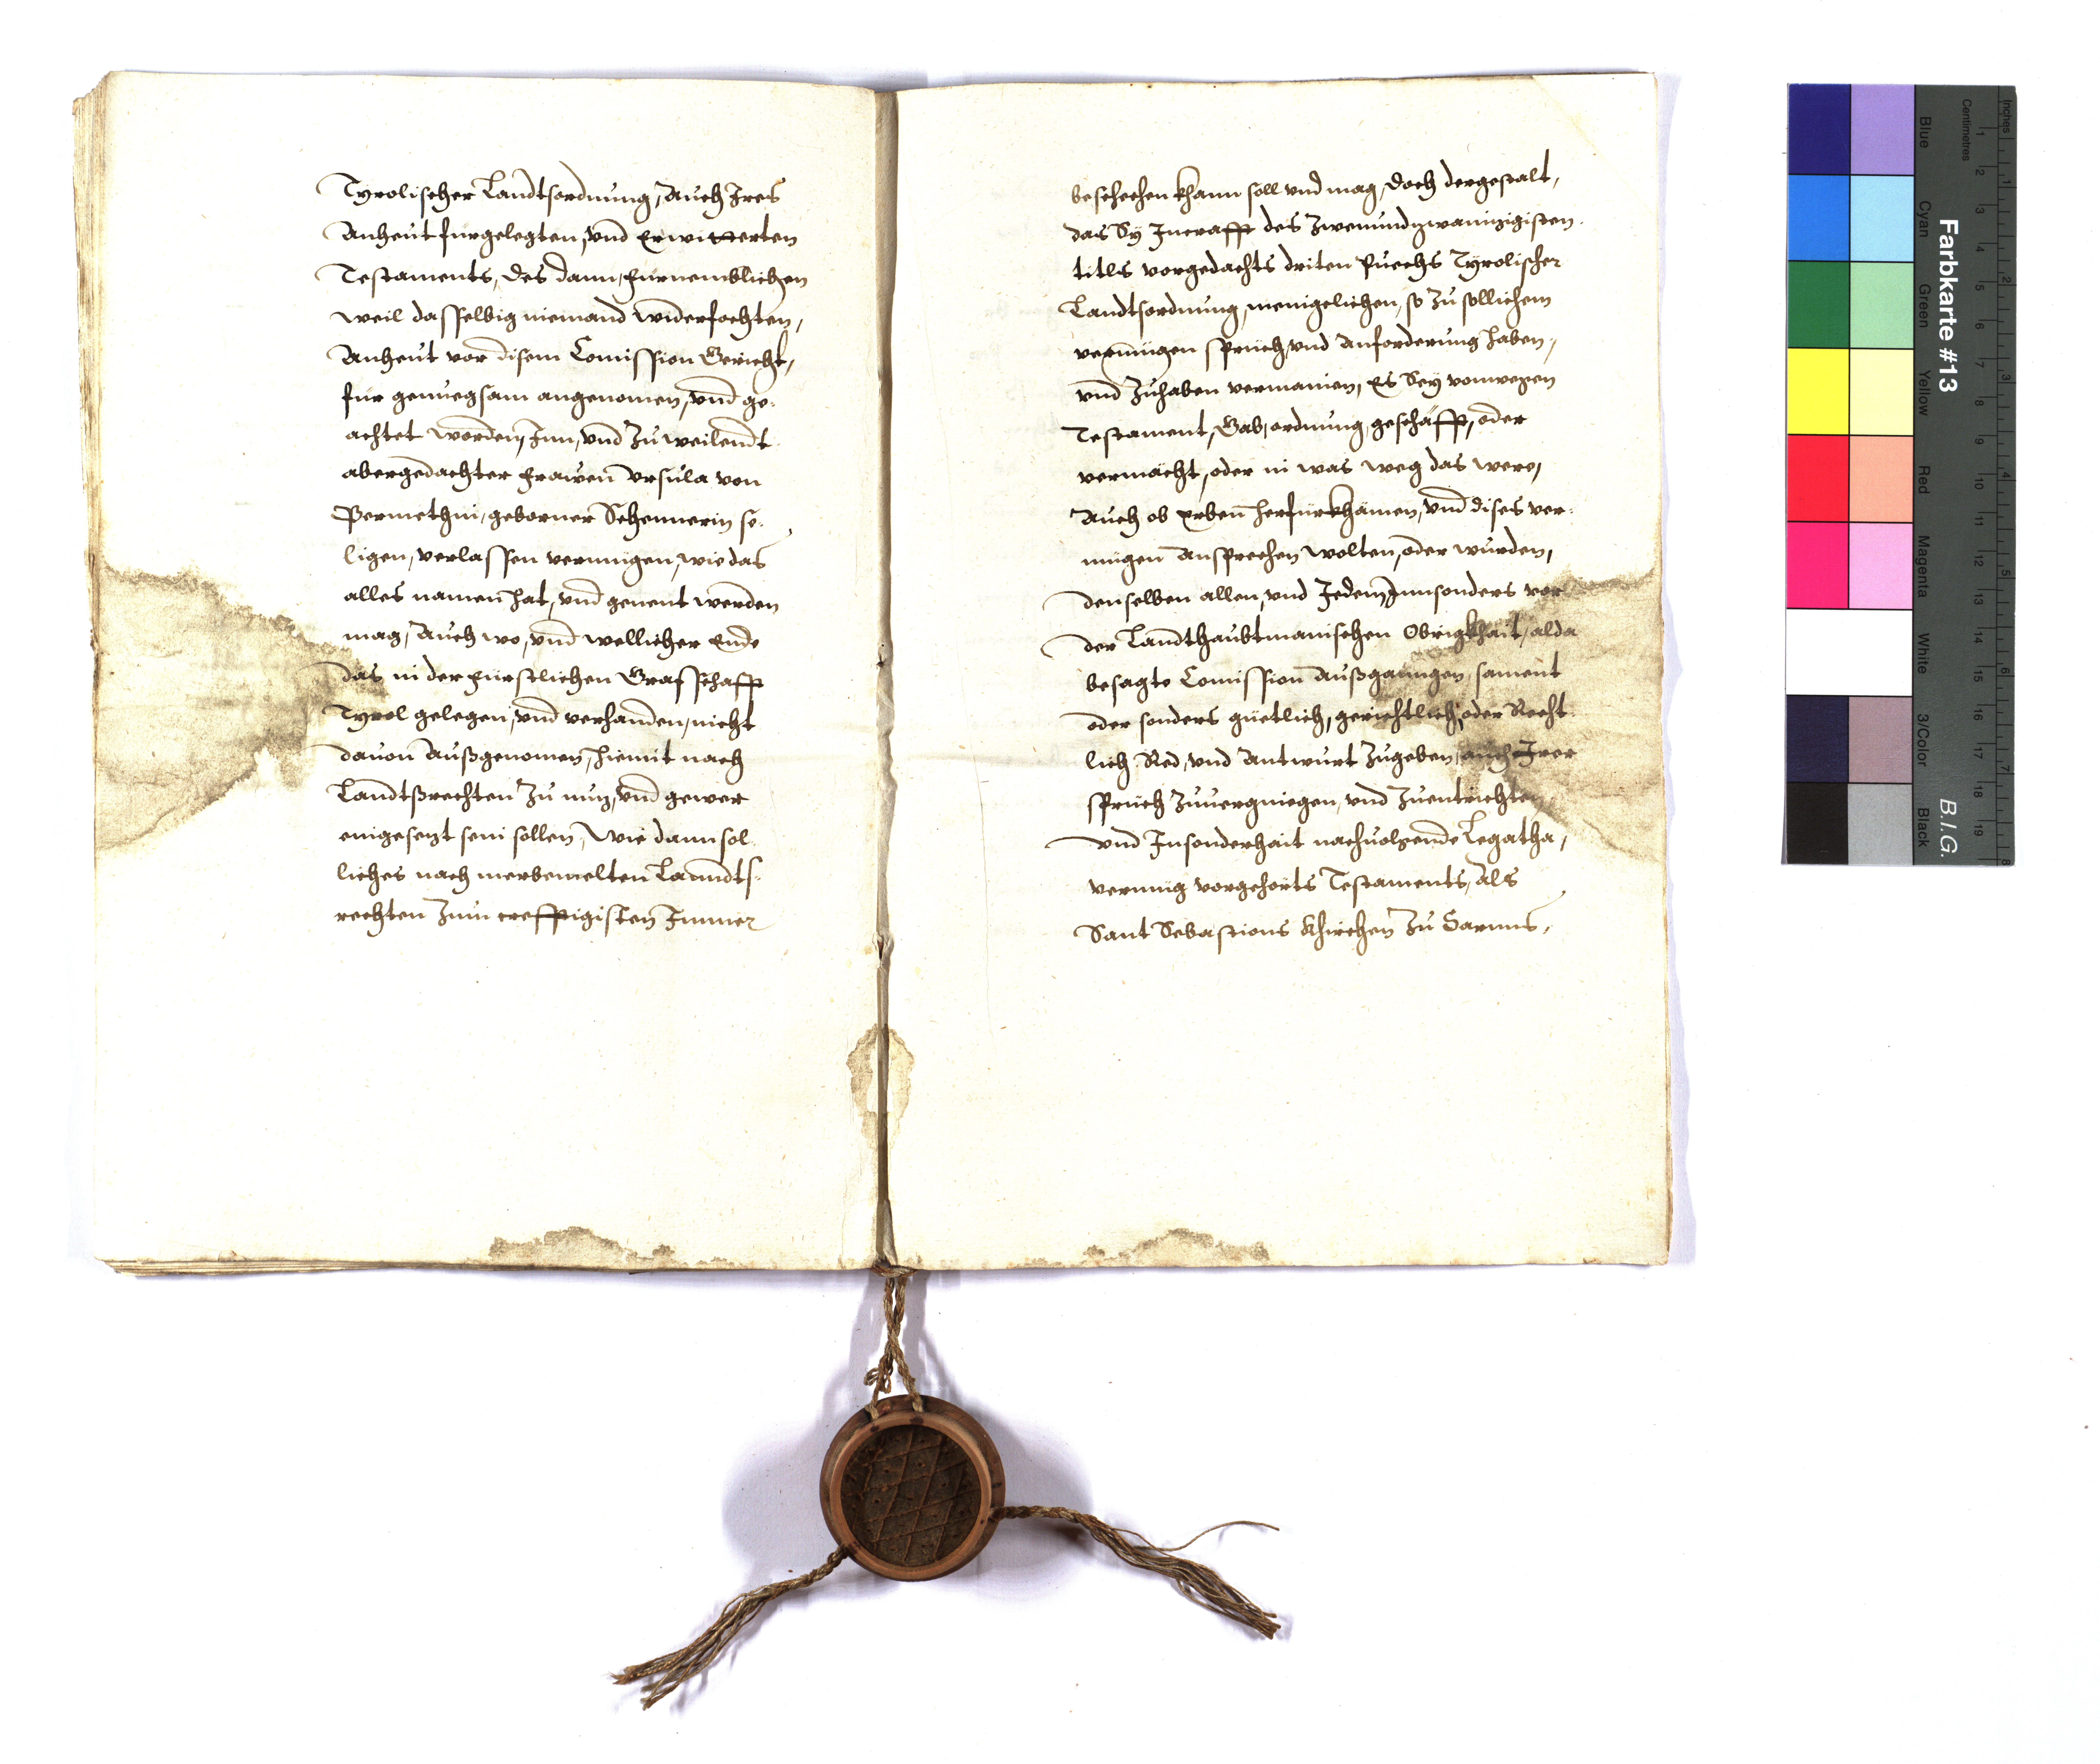 Tyrolischer Landtsordnung, Auch Ires
Anheut furgelegten, vnd Erwitterten
Testaments, des dann, furnemblichen
weil dasselbig niemand widerfochten,
Anheut vor disem Comission Gericht,
für genuegsam angenomen, vnd ge-
achtet worden, Inn, vnd Zu weilendt
abergedachter Frawen Vrsula von
geborner se-
ligen, verlassen vermügen, wie das
alles namen hat, vnd genent werden
mag, Auch wo, vnd wellicher Ende
das in der Fürstlichen Grafschafft
Tyrol gelegen, vnd verhanden, nicht
dauon Außgenomen, hiemit nach
Landtßrechten Zu nuz, vnd gewer
eingesezt sein sollen, Wie dann sol-
liches nach merbemelten Lanndts-
rechten Zum crefftigisten Immer
beschechen khann soll vnd mag, doch dergestalt,
das Sy Incrafft des Zwenundzwainzigisten
titls vorgedachts driten Puechs Tyrolischer
Landtsordnung, menigelichen, so Zu sollichem
vermügen sprüch, vnd Anforderung haben,
vnd Zuhaben vermainen, Es Sey vonwegen
Testament, Gab, ordnung, geschäfft, oder
vermächt, oder in was weg das were,
Auch ob Erben herfürkhämen, vnd dises ver-
mügen Ansprechen wolten, oder wurden,
denselben allen, vnd Jedem Innsonders vor
der Landthaubtmanischen Obrigkhait, alda
besagte Comission Außganngen, sament
oder sonders güetlich, gerichtlich, oder Recht-
lich Red, vnd Antwurt Zugeben, auch Irer
sprüch Zuuergniegen, vnd Zuentrichten
vnd Insonderhait nachuolgende Legatha,
vermüg vorgehorts Testaments, Als
Sant Sebastions Khirchen Zu
Farbkarte #13
B.I.G.
Inches
Centimetres
1 2 3 4 5 6 7 8 9 10 11 12 13 14 15 16 17 18 19
1 2 3 4 5 6 7 8
Blue
Cyan
Green
Yellow
Red
Magenta
White
3/Color
Black